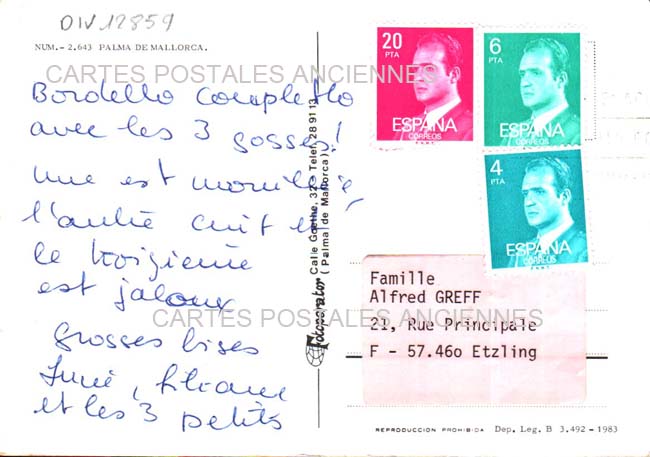 DIV 12859
NUM. - 2.643 PALMA DE MALLORCA.
CARTES POSTALES ANCIENNES
Bordello completto
avec les 3 gosses!
une est mouillée,
l'autre crit et
le troizième
est jaloux
Grosses bises
et les 3 petits
Fotocolor
Calle Goethe, 32 Telef. 28 91 13
(Palma de Mallorca)
20
PTA
ESPAÑA
CORREOS
6
PTA
ESPAÑA
CORREOS
4
PTA
ESPAÑA
CORREOS
Famille
Alfred GREFF
21, Rue Principale
F - 57.46o Etzling
CARTES POSTALES ANCIENNES
REPRODUCCION PROHIBIDA Dep. Leg. B 3.492 - 1983